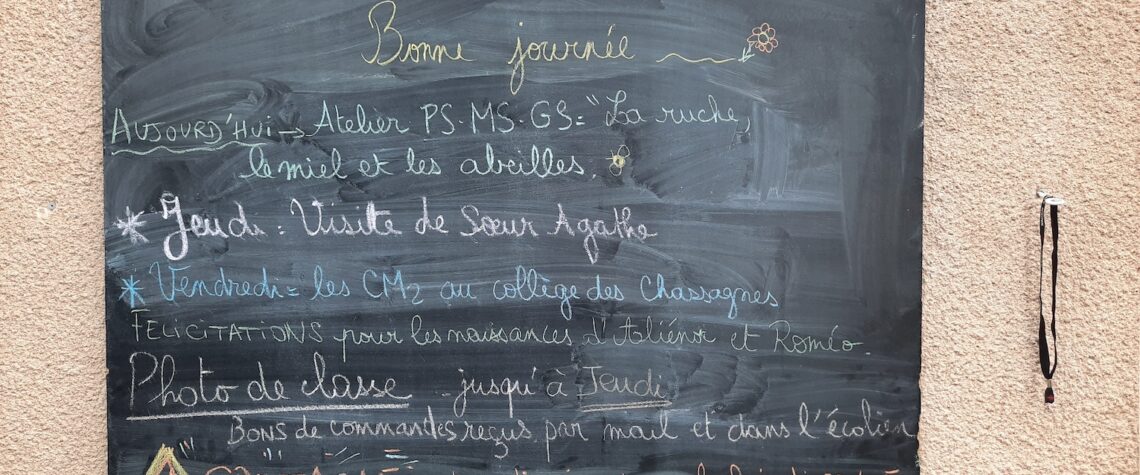 Bonne journée
AUJOURD'HUI → Atelier PS-MS-GS= "La ruche,
le miel et les abeilles.
* Jeudi : Visite de Sœur Agathe
* Vendredi= les CM2 au collège des Chassagnes
FELICITATIONS pour les naissances d'Aliénor et Roméo.
Photo de classe .. jusqu'à Jeudi
BONS de commandes reçus par mail et dans l'écolien